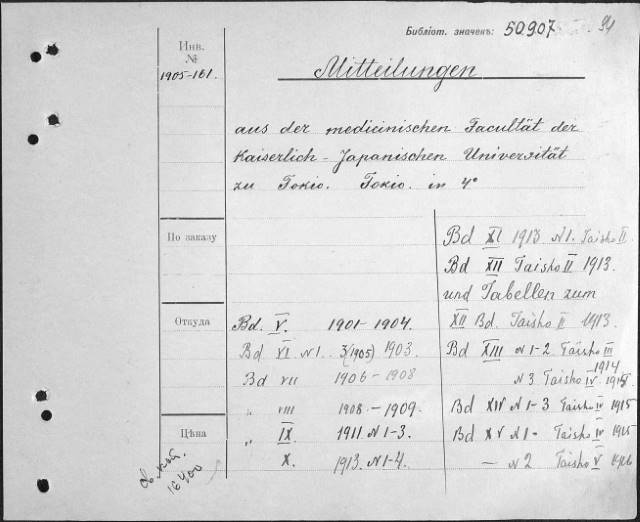 Библіот. значекъ: 50.907
Инв.
№
1905-161.
Mitteilungen
aus der medicinischen Facultät der
Kaiserlich-Japanischen Universität
zu Tokio. Tokio. in 4°
По заказу
Откуда
Цѣна
16400
Bd. V. 1901-1904.
Bd VI N1. 3(1905) 1903.
Bd VII 1906-1908
„ VIII 1908.-1909.
„ IX 1911. N1-3.
X. 1913. N1-4.
Bd XI 1913 N1. Taisho II
Bd XII Taisho II 1913.
und Tabellen zum
XII Bd. Taisho II 1913.
Bd XIII N1-2 Taisho III
1914
N3 Taisho IV 1915
Bd XIV N1-3 Taisho IV 1915
Bd XV N1- Taisho IV 1915
— N2 Taisho V 1916